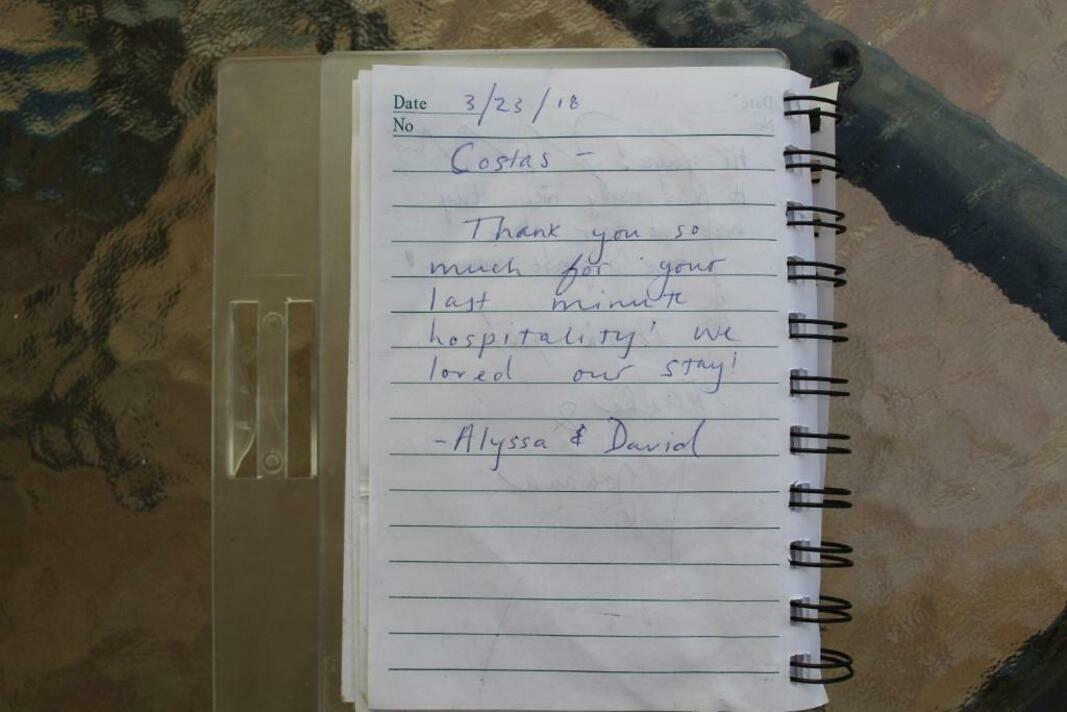 Date 3/23/18
No
Costas -
Thank you so
much for your
last minute
hospitality! We
loved our stay!
-Alyssa & David